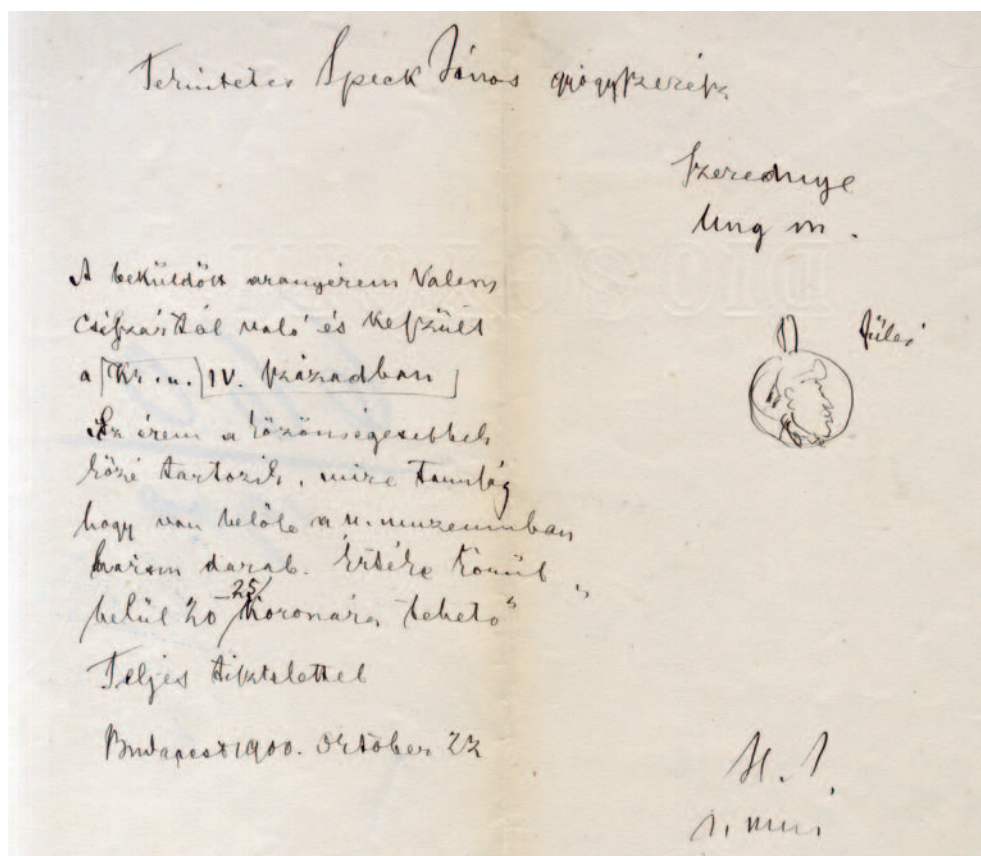 Tekintetes Speck János gyógyszerész
Szerednye
Ung m.
A beküldött aranyérem Valens
császártól való és készült
a (Kr. u.) IV. században
füles
Az érem a közönségesebbek
közé tartozik, mire tanuság
hogy van belőle a n. muzeumban
három darab. Értéke körül
belül 20-25 koronára tehető
Teljes tisztelettel
Budapest 1900. October 22
H. J.
n. muz.